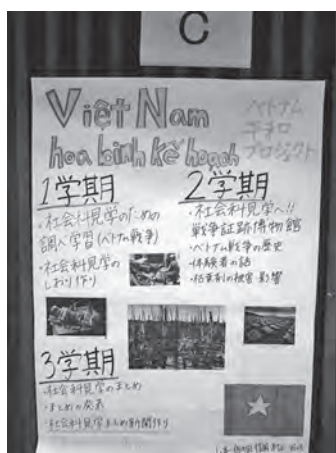 C
Việt Nam
hoa bình kế hoạch
ベトナム
平和
プロジェクト
1学期
・社会科見学のための
調べ学習(ベトナム戦争)
・社会科見学の
しおり作り
2学期
・社会科見学へ!!
戦争証跡博物館
・ベトナム戦争の歴史
・体験者の話
・枯葉剤の被害 影響
3学期
・社会科見学のまとめ
・まとめの発表
・社会科見学まとめ新聞作り